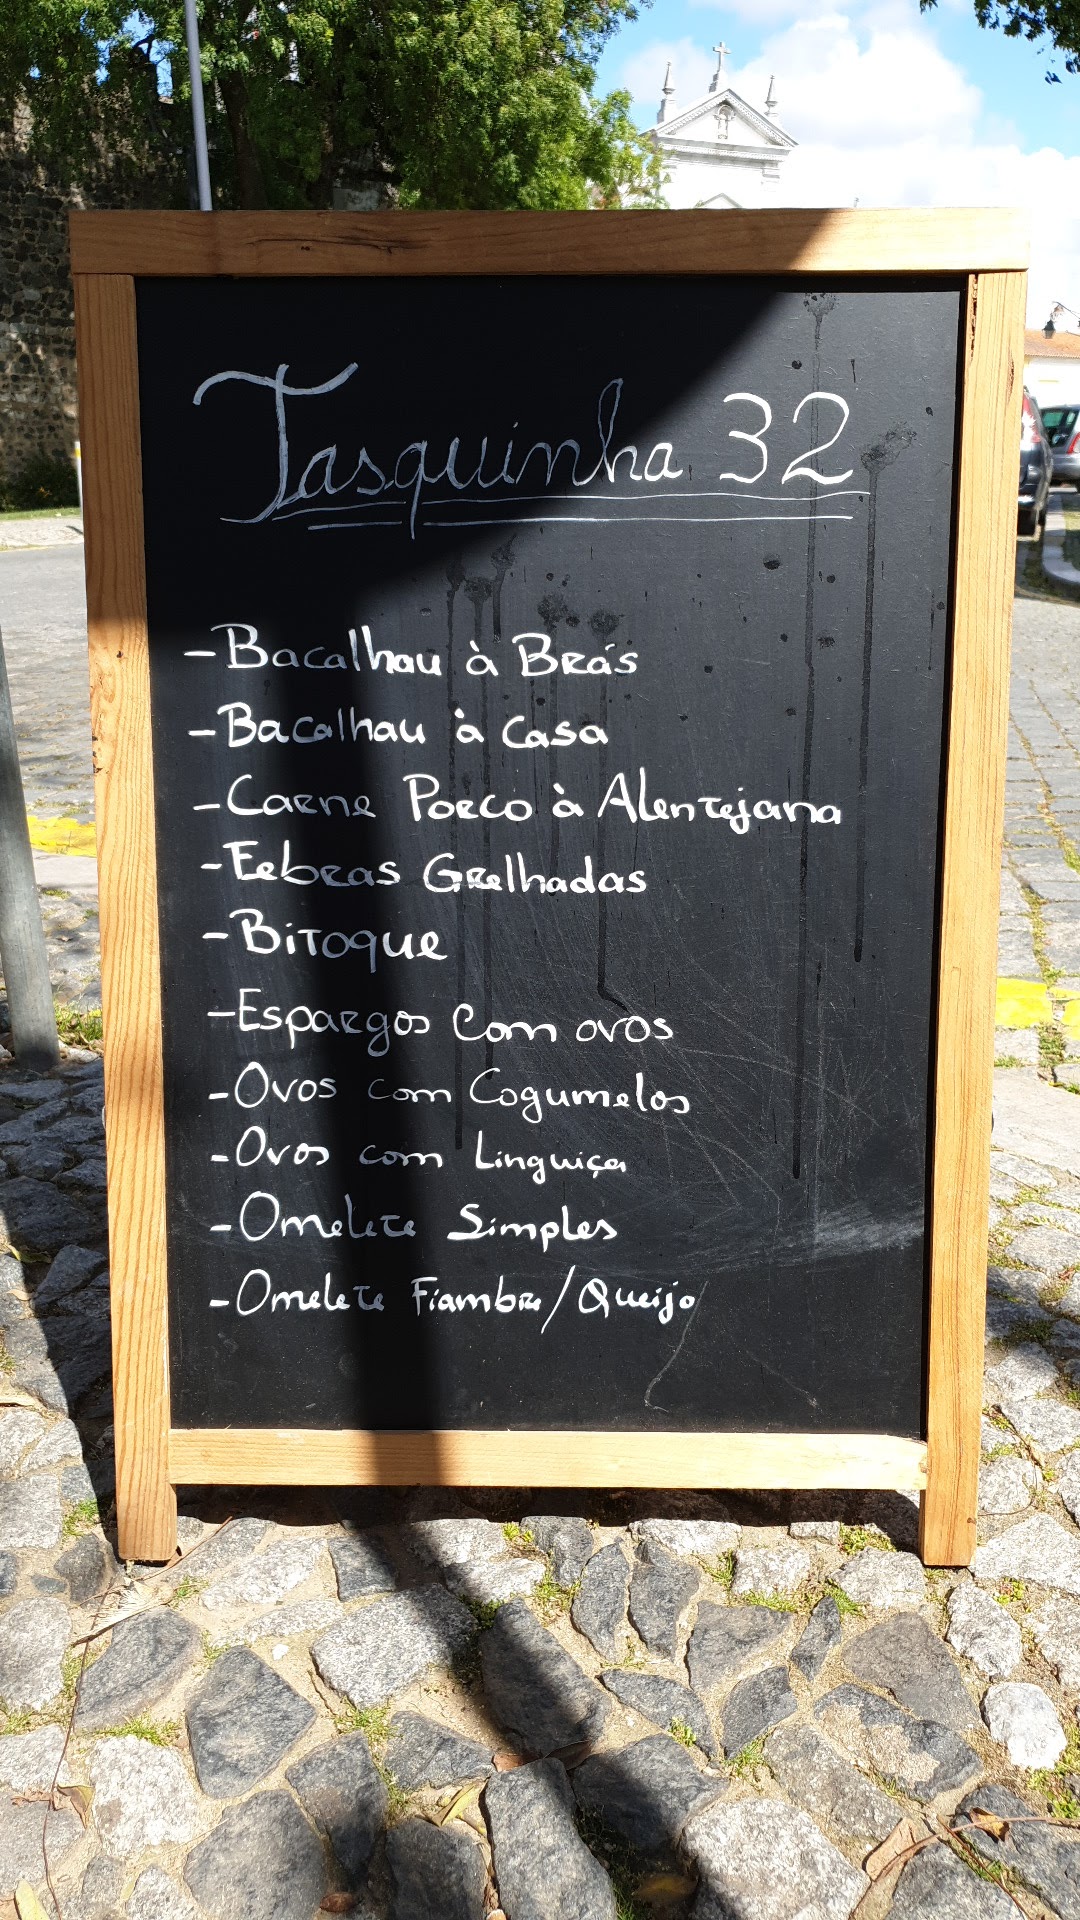 Tasquinha 32
- Bacalhau à Brás
- Bacalhau à Casa
- Carne Porco à Alentejana
- Febras Grelhadas
- Bitoque
- Espargos com ovos
- Ovos com Cogumelos
- Ovos com Linguiça
- Omelete Simples
- Omelete Fiambre/Queijo